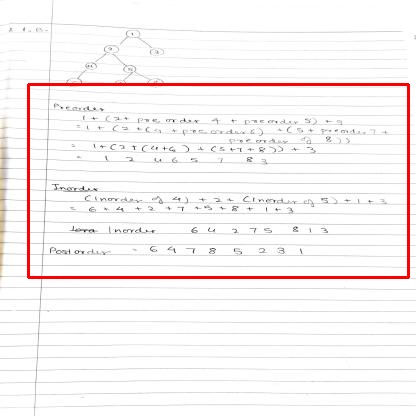 1
2 3
4 5
Preorder
1 + (2 + preorder 4 + preorder 5) + 3
= 1 + (2 + (4 + preorder 6) + (5 + preorder 7 +
preorder of 8))
= 1 + (2 + (4 + 6) + (5 + 7 + 8)) + 3
= 1 2 4 6 5 7 8 3
Inorder
(Inorder of 4) + 2 + (Inorder of 5) + 1 + 3
= 6 + 4 + 2 + 7 + 5 + 8 + 1 + 3
Inorder 6 4 2 7 5 8 1 3
Postorder = 6 4 7 8 5 2 3 1